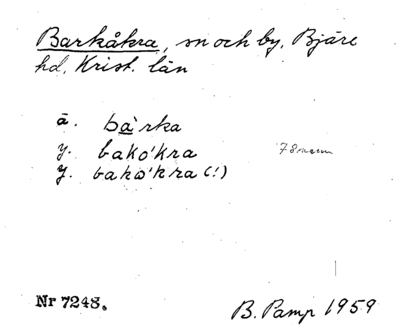 Barkåkra, sn och by, Bjäre
hd, Krist. län
ä. bàrka
y. bako'kra
y. bako'kra (!)
Nr 7248.
B. Pamp 1959